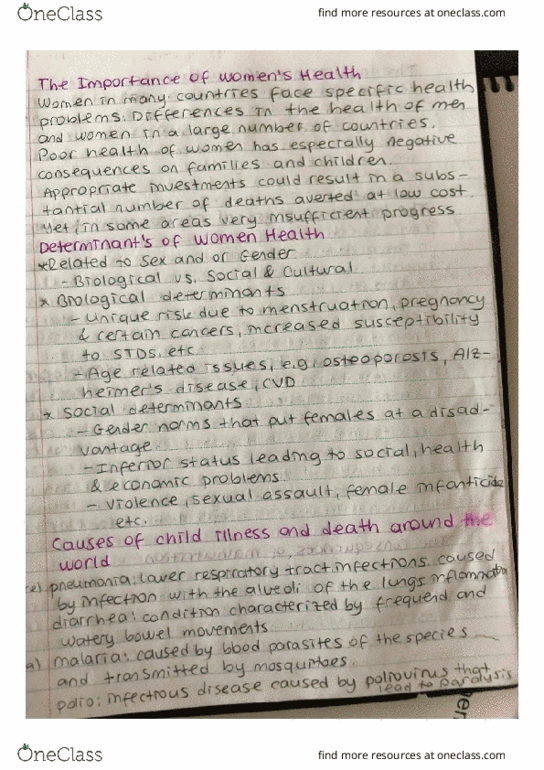 OneClass
find more resources at oneclass.com
The Importance of women's Health
Women in many countries face specific health
problems. Differences in the health of men
and women in a large number of countries.
Poor health of women has especially negative
consequences on families and children.
Appropriate investments could result in a subs-
tantial number of deaths averted at low cost
yet, in some areas very insufficient progress
Determinant's of women Health
*Related to sex and or Gender
- Biological vs. Social & Cultural
* Biological determinants
- unique risk due to menstruation, pregnancy
& certain cancers, increased susceptibility
to STDS, etc
- Age related issues, e.g. osteoporosis, Alz-
heimer's disease, CVD
* social determinants
- Gender norms that put females at a disad-
vantage
- Inferior status leading to social, health
& economic problems
- violence, sexual assault, female infanticide
etc.
Causes of child illness and death around the
world
pneumonia: lower respiratory tract infections caused
by infection with the alveoli of the lungs inflammation
diarrhea: condition characterized by frequent and
watery bowel movements
malaria: caused by blood parasites of the species
and transmitted by mosquitoes
polio: infectious disease caused by poliovirus that
lead to paralysis
OneClass
find more resources at oneclass.com